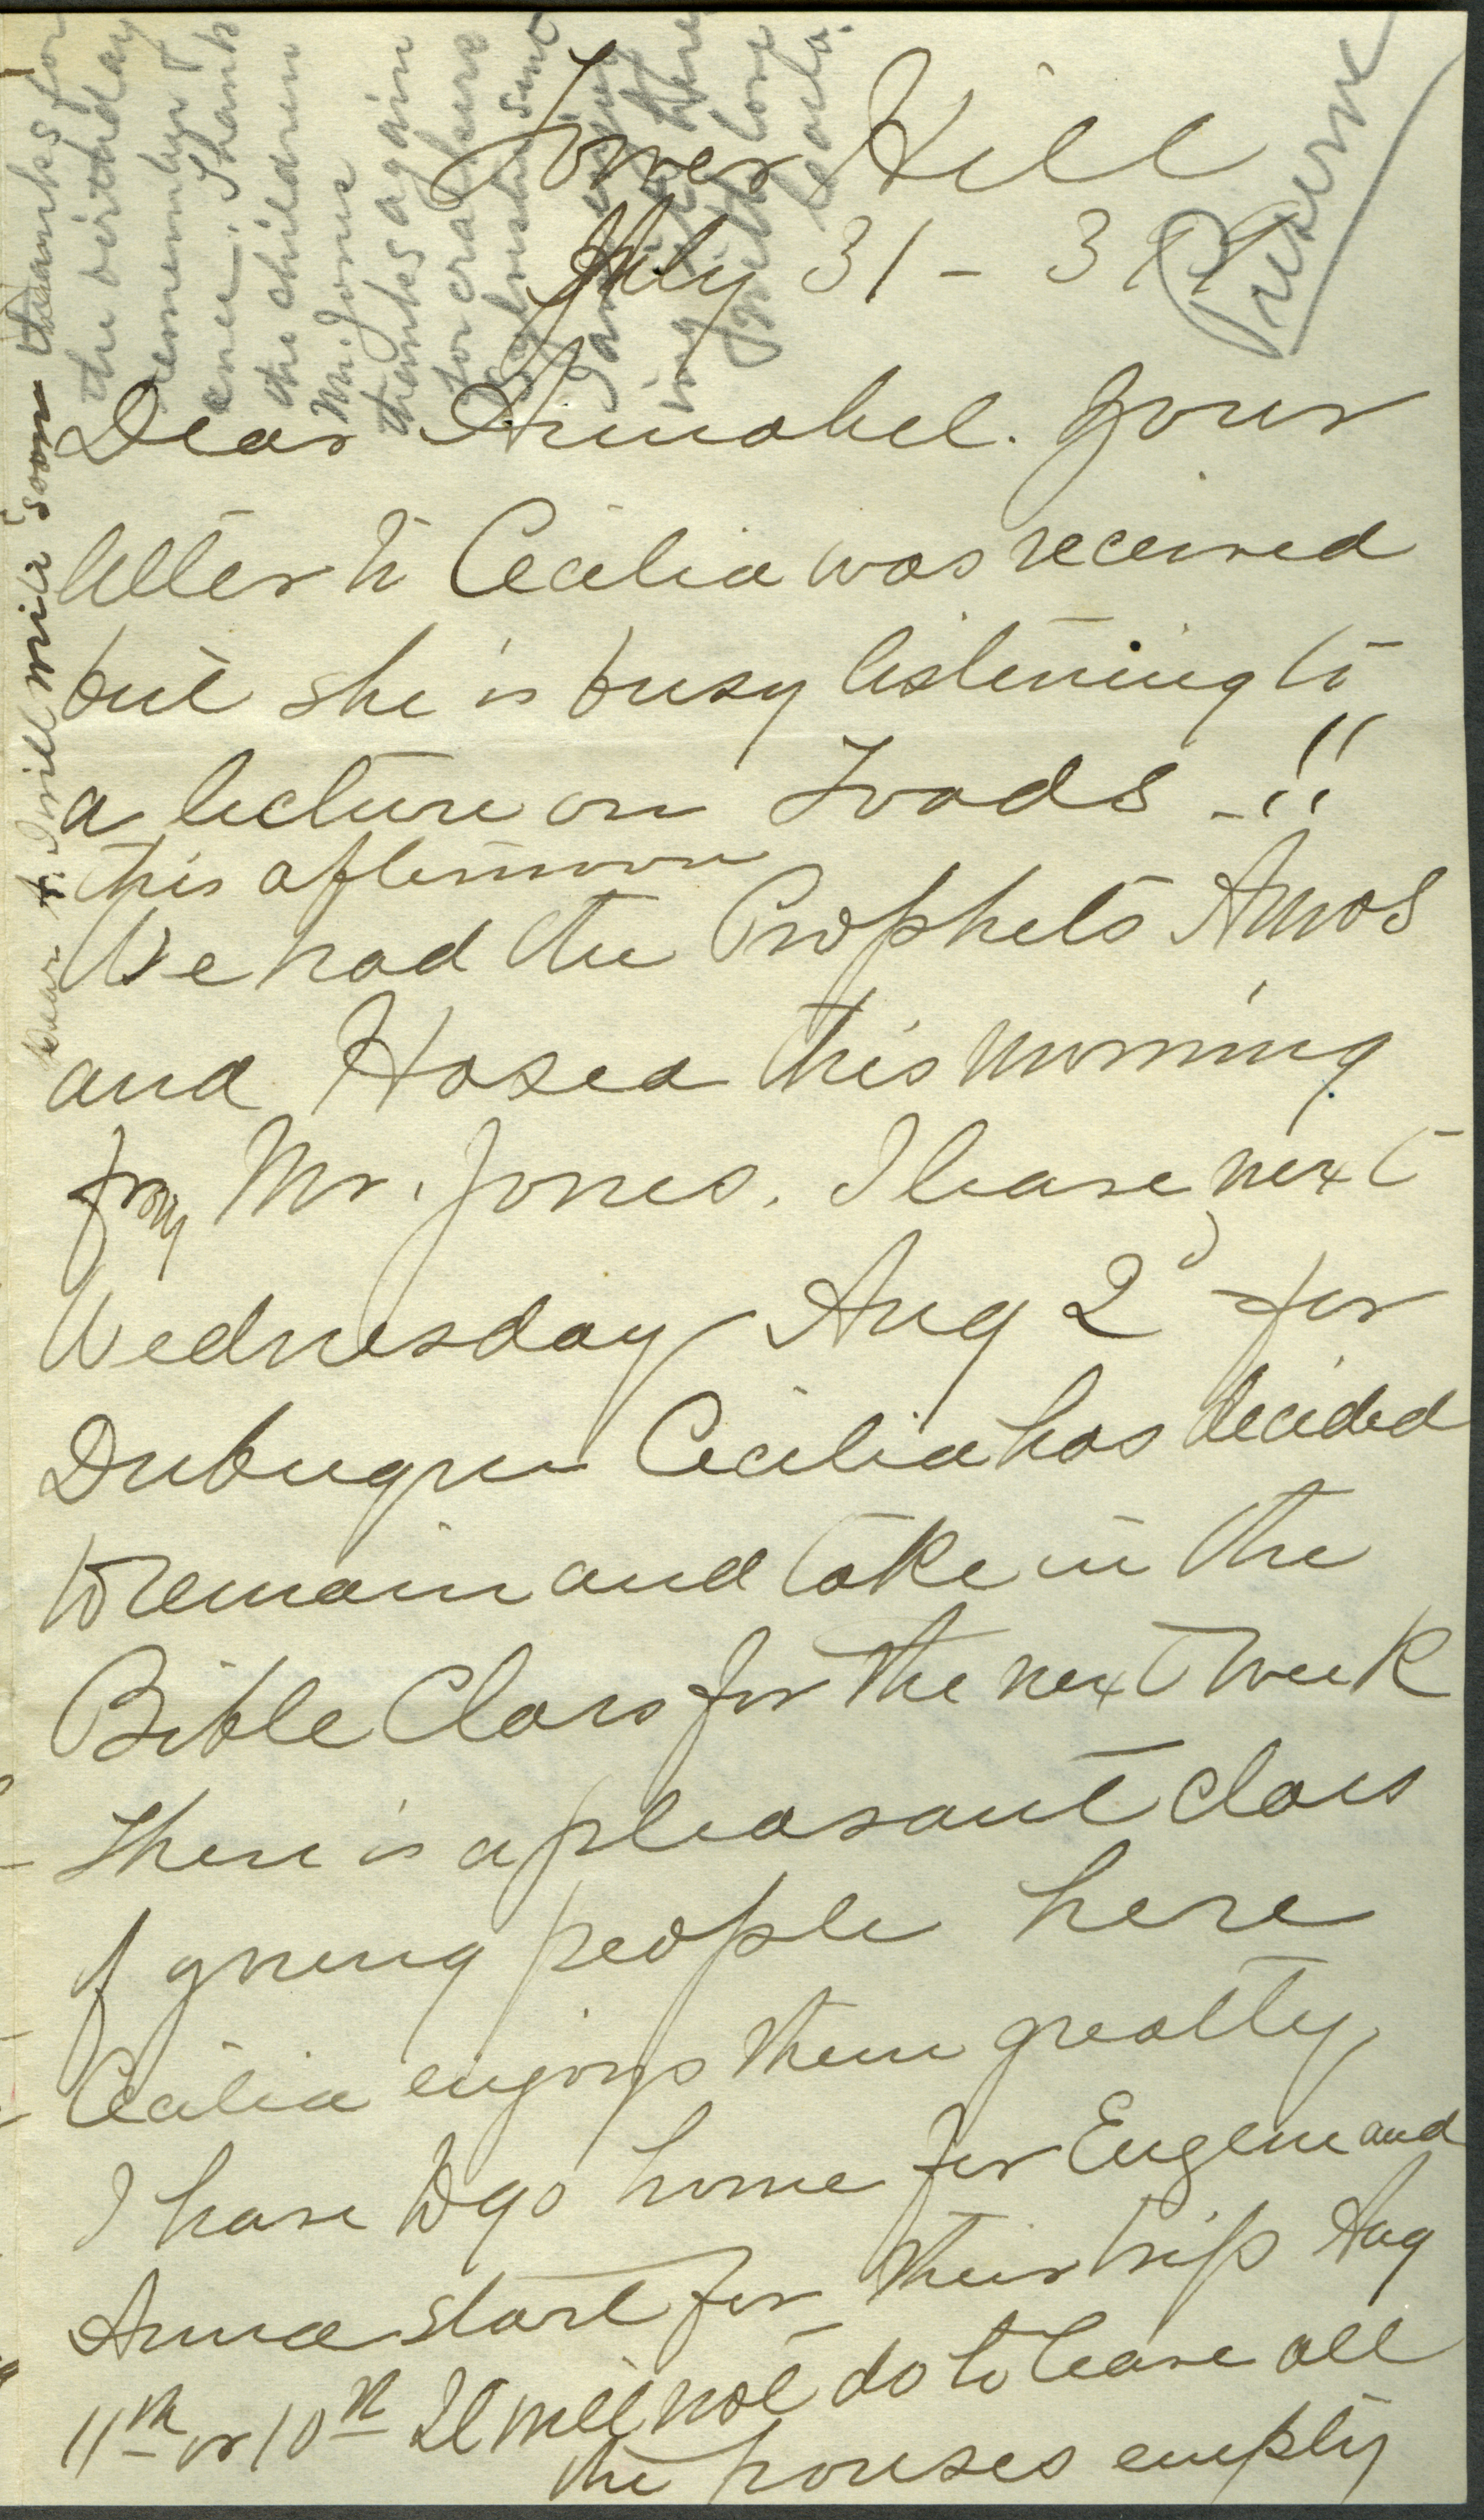 Tower Hill
July 31 - 3 P.M.
Preserve
Dear Annabel. Your
letter to Cecilia was received
but she is busy listening to
a lecture on Toads - !!
this afternoon
We had the Prophets Amos
and Hosea this morning
from Mr. Jones. I leave next
Wednesday Aug 2d for
Dubuque Cecilia has decided
to remain and take in the
Bible Class for the next week
There is a pleasant class
of young people here
Cecilia enjoys them greatly,
I have to go home for Eugene and
Anna start for their trip Aug
11th or 10th It will not do to leave all
the houses empty
Dear A. I will write soon thanks for
the birthday
remembrance. Thank
the children
Mr. Jones
thanks again
for crackers
sent
I am
ing
with love
Cecelia.